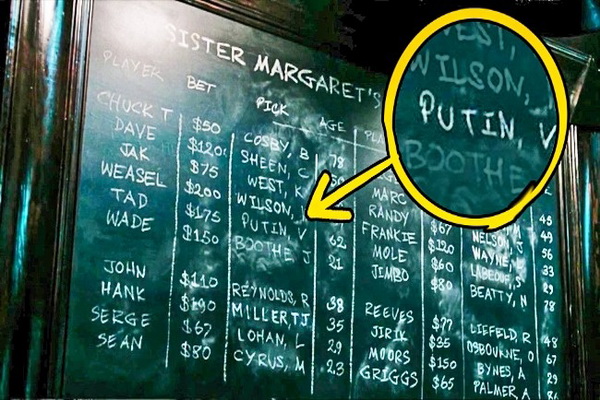 SISTER MARGARET'S
PLAYER BET PICK AGE
CHUCK T $50 COSBY, B 78
DAVE $120 SHEEN, C
JAK $75 WEST, K
WEASEL $200 WILSON,
TAD $175 PUTIN, V 62
WADE $150 BOOTHE, J 21
JOHN $110 REYNOLDS, R 38
HANK $190 MILLER, TJ 35
SERGE $67 LOHAN, L 29
SEAN $80 CYRUS, M 23
MARC
RANDY $67 NELSON,
FRANKIE $120 WAYNE,
MOLE $60 LABEOUF, S 29
JIMBO $80 BEATTY, N 78
REEVES DIEFELD, R 48
JIRIK $35 OSBOURNE, O 67
MOORS $150 BYNES, A 29
GRIGGS $65 PALMER, A
WEST,
WILSON,
PUTIN, V
BOOTHE